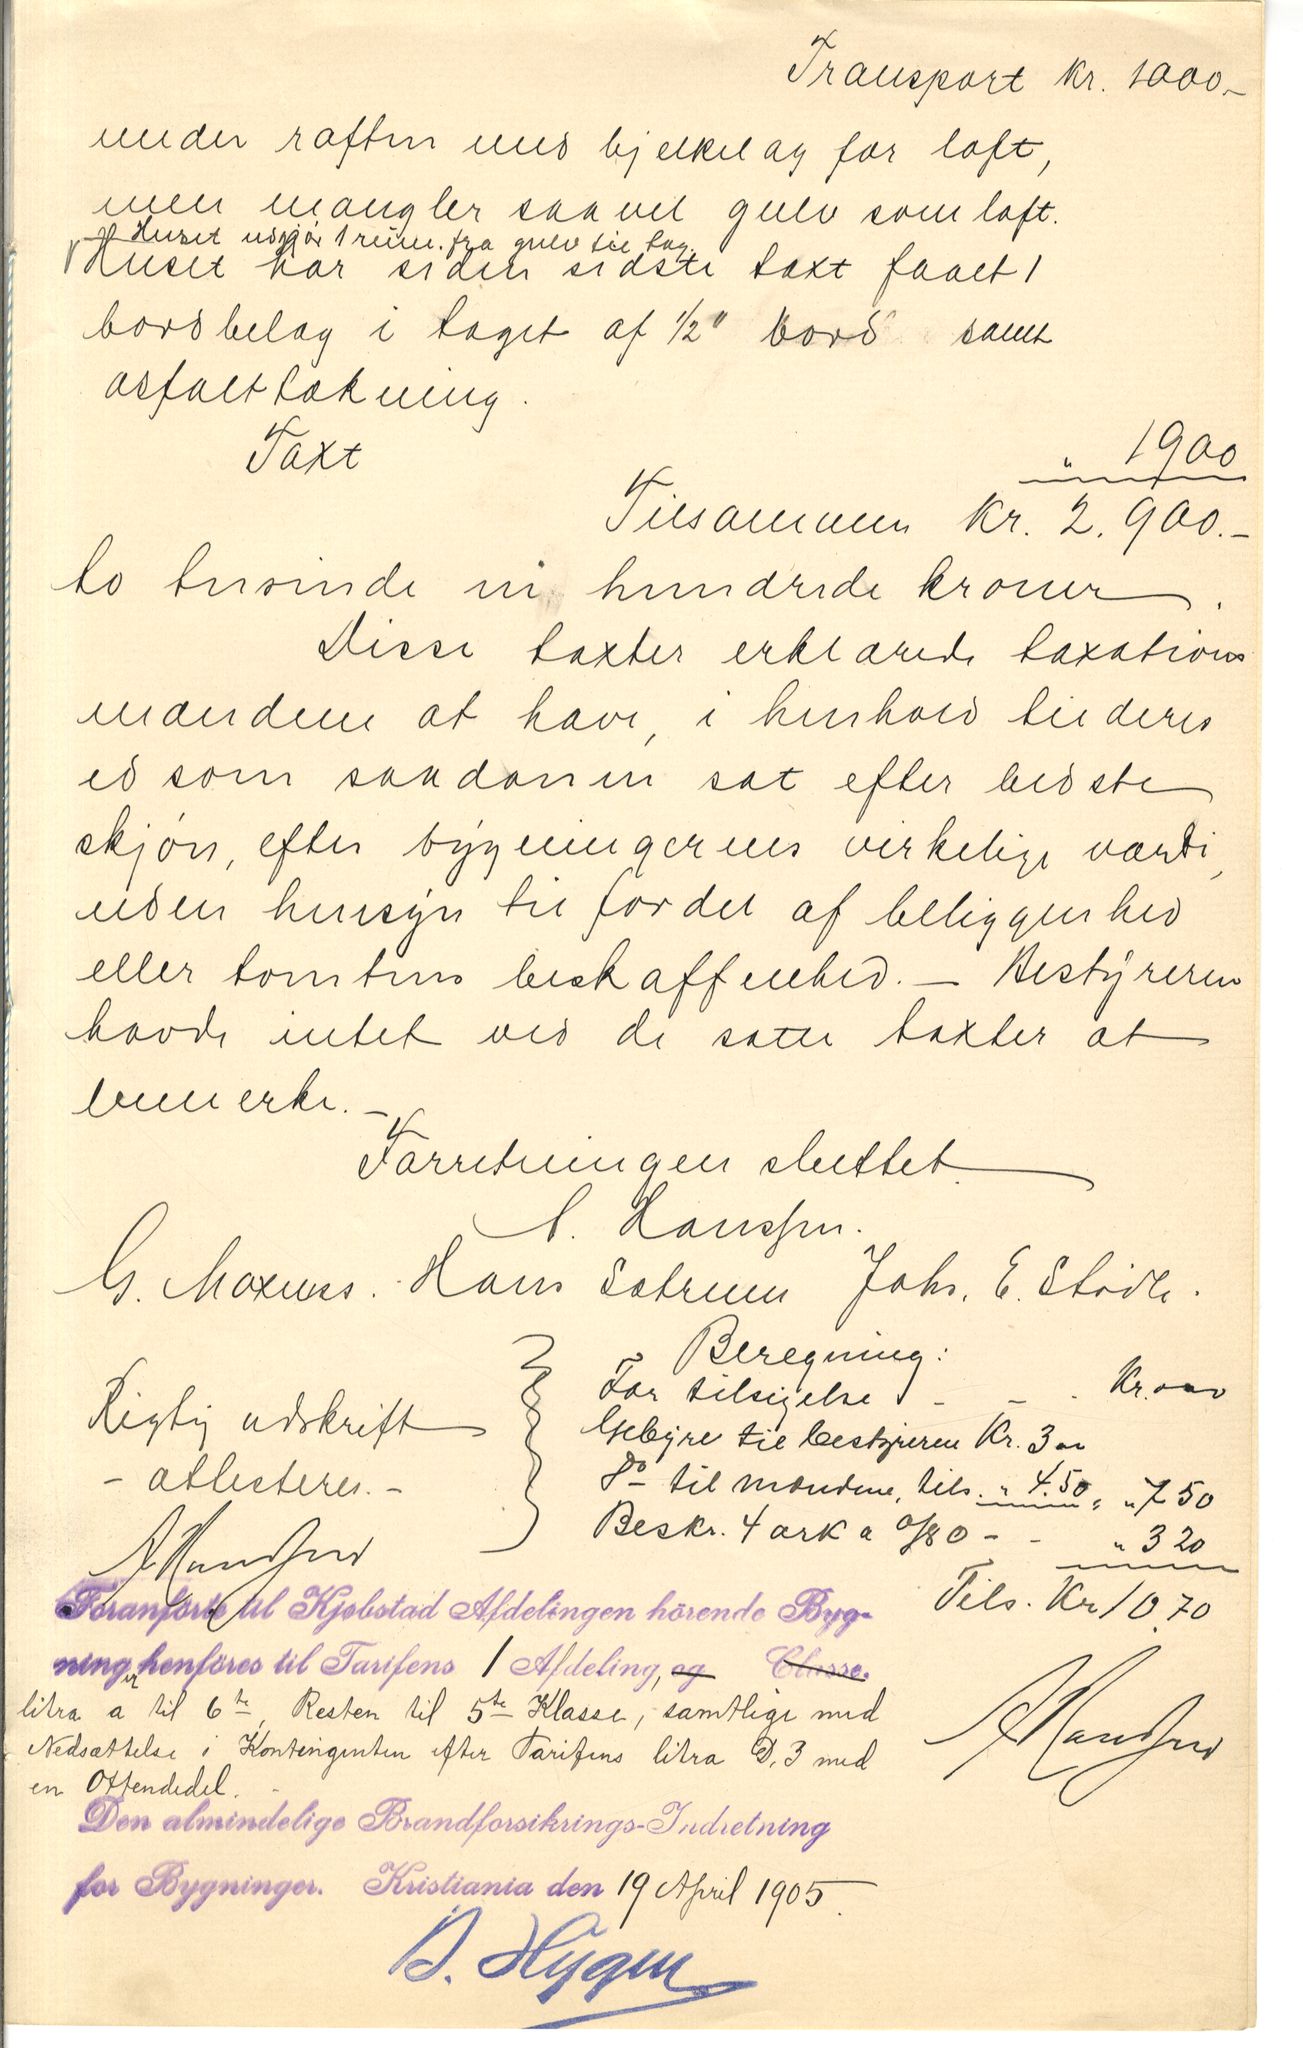 Transport Kr. 1000.-
under raften med bjelkelag for loft,
men mangler saavel gulv som loft.
Huset udgjør 1 rum fra gulv til tag.
Huset har siden sidste taxt faaet 1
bordbelag i taget af 1/2" bord samt
asfalttækning.
Taxt " 1900
Tilsammen Kr. 2.900.-
to tusinde ni hundrede kroner.
Disse taxter erklærede taxations
mændene at have, i henhold til deres
ed som saadanne sat efter bedste
skjøn, efter bygningernes virkelige værdi,
uden hensyn til fordel af beliggenhed
eller tomtens beskaffenhed. — Bestyreren
havde intet ved de satte taxter at
bemerke. -
Forretningen sluttet
A. Hanssen.
G. Maxness. Hans Sætrum Johs. E. Stødle.
Beregning:
For tilsigelse - - - Kr. 0 00
Gebyr til bestyreren Kr. 3 00
Do til mændene, tils. " 4.50 = " 7 50
Beskr. 4 ark a 0/80 - - " 3 20
Tils. Kr 10.70
Rigtig udskrift
- attesteres. -
A Hanssen
Foranførte til Kjøbstad Afdelingen hörende Byg-
ninger henföres til Tarifens 1 Afdeling, og Classe.
litra a til 6te, Resten til 5te Klasse, samtlige med
Nedsættelse i Kontingenten efter Tarifens litra D. 3 med
en Ottendedel. -
A Hanssen
Den almindelige Brandforsikrings-Indretning
for Bygninger. Kristiania den 19 April 1905.
B. Hygen